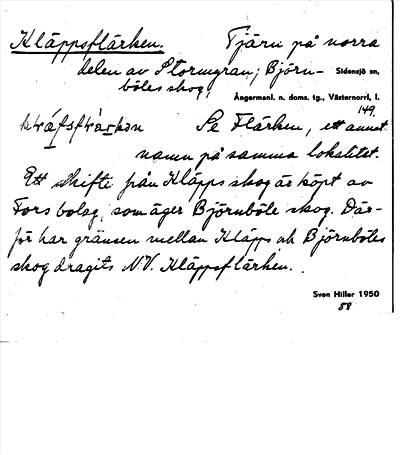 Kläppsflärken. Tjärn på norra
delen av Stormyran; Björn- Sidensjö sn,
böles skog.
Ångermanl. n. doms. tg., Västernorrl. l.
149.
Se Flärken, ett annat
namn på samma lokalitet.
Ett skifte från Kläpps skog är köpt av
Fors bolag, som äger Björnböle skog. Där-
för har gränsen mellan Kläpps och Björnböles
skog dragits N.V. Kläppsflärken.
Sven Hiller 1950
58